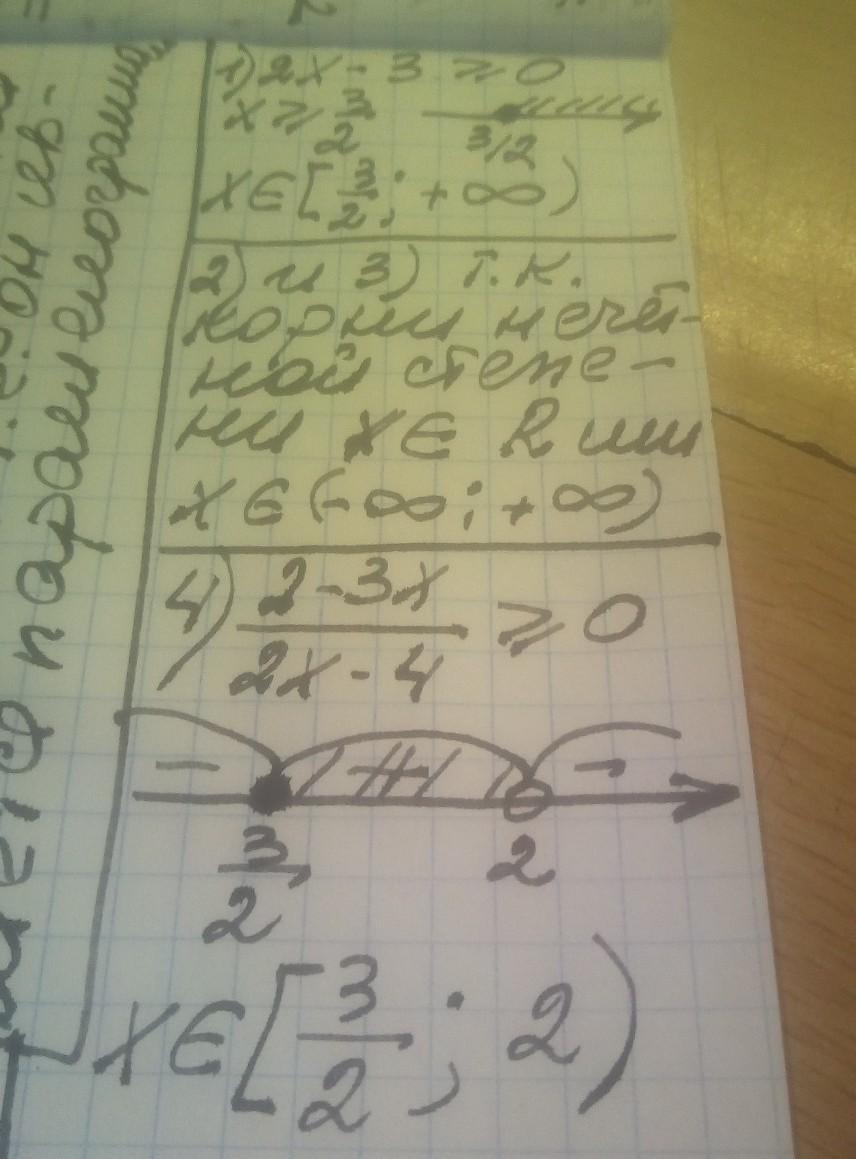 1) 2x - 3 ≥ 0
x ≥ 3/2
3/2
x ∈ [3/2; +∞)
2) и 3) т.к.
корни нечёт-
ной степе-
ни x ∈ R или
x ∈ (-∞; +∞)
4) (2-3x)/(2x-4) ≥ 0
- + -
3/2 2
x ∈ [3/2; 2)
параллелограмма